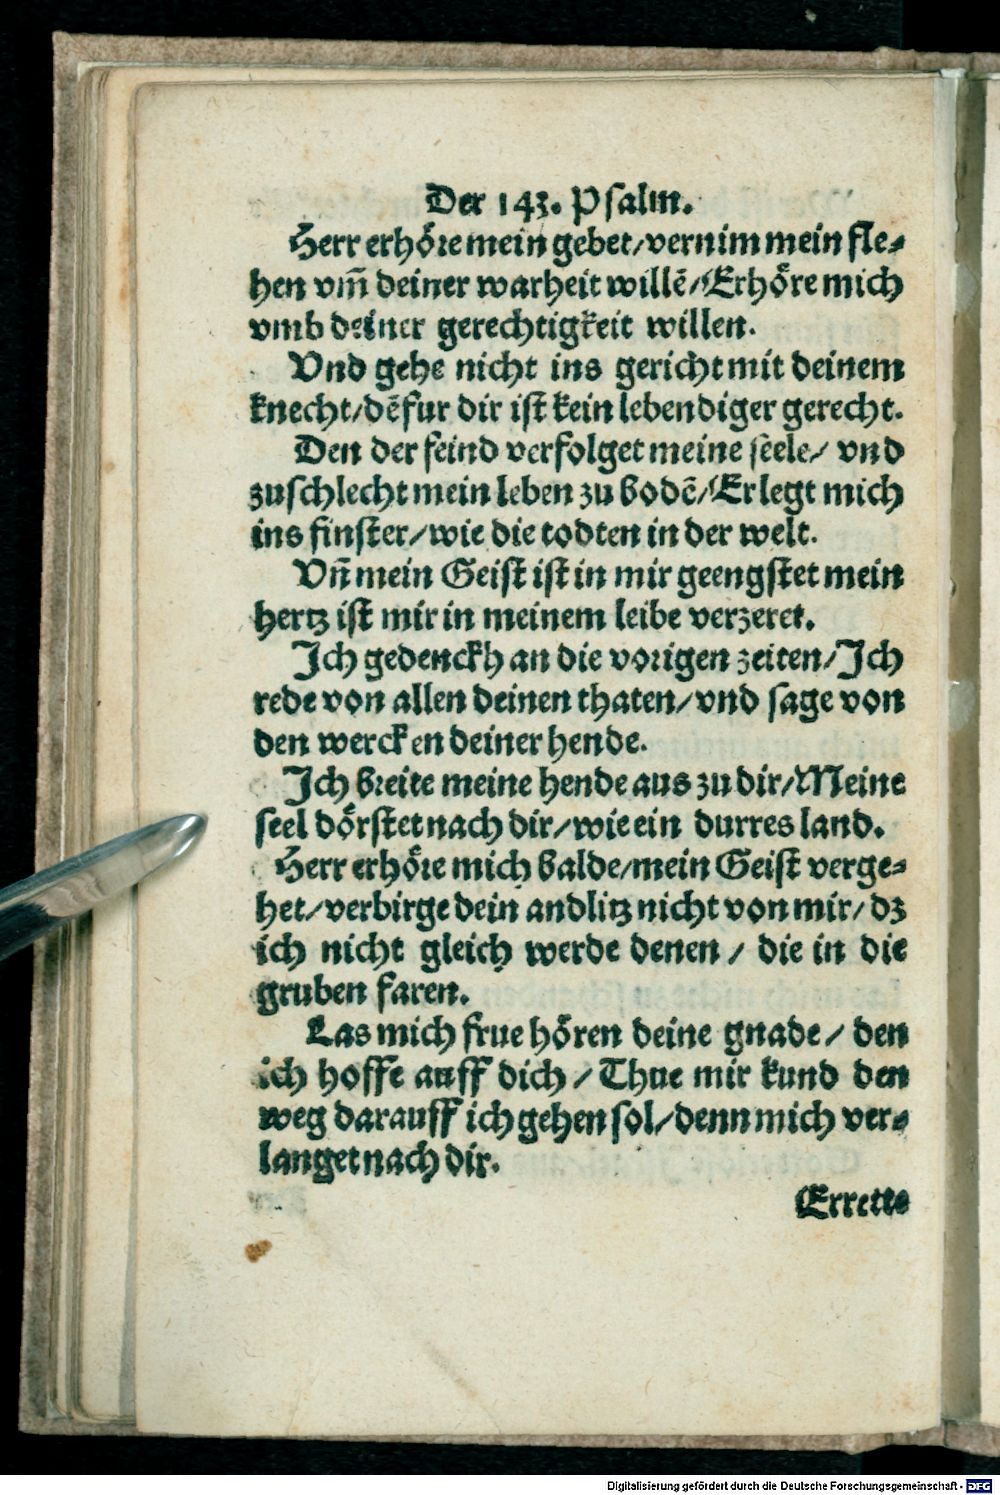 Der 143. Psalm.
Herr erhöre mein gebet/vernim mein fle⸗
hen vm̄ deiner warheit willē/Erhöre mich
vmb deiner gerechtigkeit willen.
Vnd gehe nicht ins gericht mit deinem
knecht/dē fur dir ist kein lebendiger gerecht.
Den der feind verfolget meine seele/ vnd
zuschlecht mein leben zu bodē/Erlegt mich
ins finster/wie die todten in der welt.
Vn̄ mein Geist ist in mir geengstet mein
hertz ist mir in meinem leibe verzeret.
Ich gedenckh an die vorigen zeiten/Ich
rede von allen deinen thaten/vnd sage von
den wercken deiner hende.
Ich breite meine hende aus zu dir/Meine
seel dörstet nach dir/wie ein durres land.
Herr erhöre mich balde/mein Geist verge⸗
het/verbirge dein andlitz nicht von mir/ dz
ich nicht gleich werde denen / die in die
gruben faren.
Las mich frue hören deine gnade/ den
ich hoffe auff dich /Thue mir kund den
weg darauff ich gehen sol/denn mich ver⸗
langet nach dir.
Errette
Digitalisierung gefördert durch die Deutsche Forschungsgemeinschaft - DFG